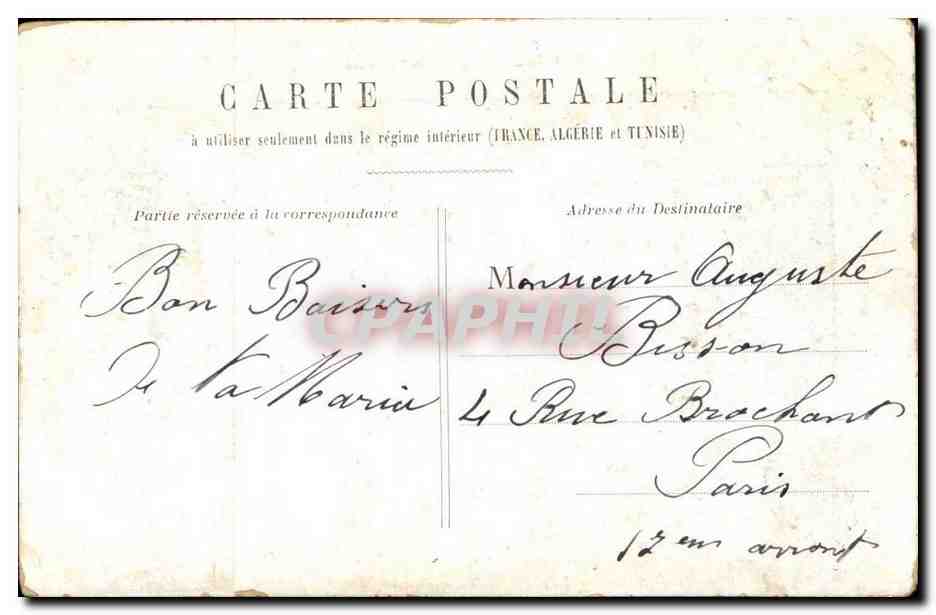 CARTE POSTALE
à utiliser seulement dans le régime intérieur (FRANCE, ALGÉRIE et TUNISIE)
Partie réservée à la correspondance
Bon Baisers
De ta Maria
Adresse du Destinataire
Monsieur Auguste
Bisson
4 Rue Brochant
Paris
17em arront
CPAPHIL